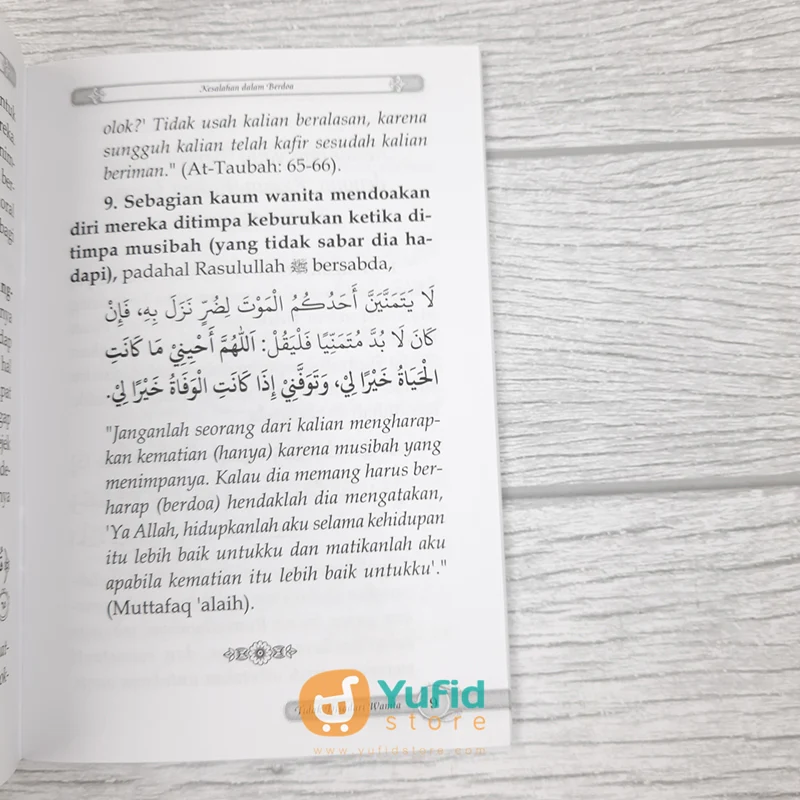 Kesalahan dalam Berdoa
olok?' Tidak usah kalian beralasan, karena
sungguh kalian telah kafir sesudah kalian
beriman." (At-Taubah: 65-66).
9. Sebagian kaum wanita mendoakan
diri mereka ditimpa keburukan ketika di-
timpa musibah (yang tidak sabar dia ha-
dapi), padahal Rasulullah ﷺ bersabda,
لَا يَتَمَنَّيَنَّ أَحَدُكُمُ الْمَوْتَ لِضُرٍّ نَزَلَ بِهِ، فَإِنْ
كَانَ لَا بُدَّ مُتَمَنِّيًا فَلْيَقُلْ: اَللّٰهُمَّ أَحْيِنِيْ مَا كَانَتِ
الْحَيَاةُ خَيْرًا لِيْ، وَتَوَفَّنِيْ إِذَا كَانَتِ الْوَفَاةُ خَيْرًا لِيْ.
"Janganlah seorang dari kalian mengharap-
kan kematian (hanya) karena musibah yang
menimpanya. Kalau dia memang harus ber-
harap (berdoa) hendaklah dia mengatakan,
'Ya Allah, hidupkanlah aku selama kehidupan
itu lebih baik untukku dan matikanlah aku
apabila kematian itu lebih baik untukku'."
(Muttafaq 'alaih).
Yufid
store
www.yufidstore.com